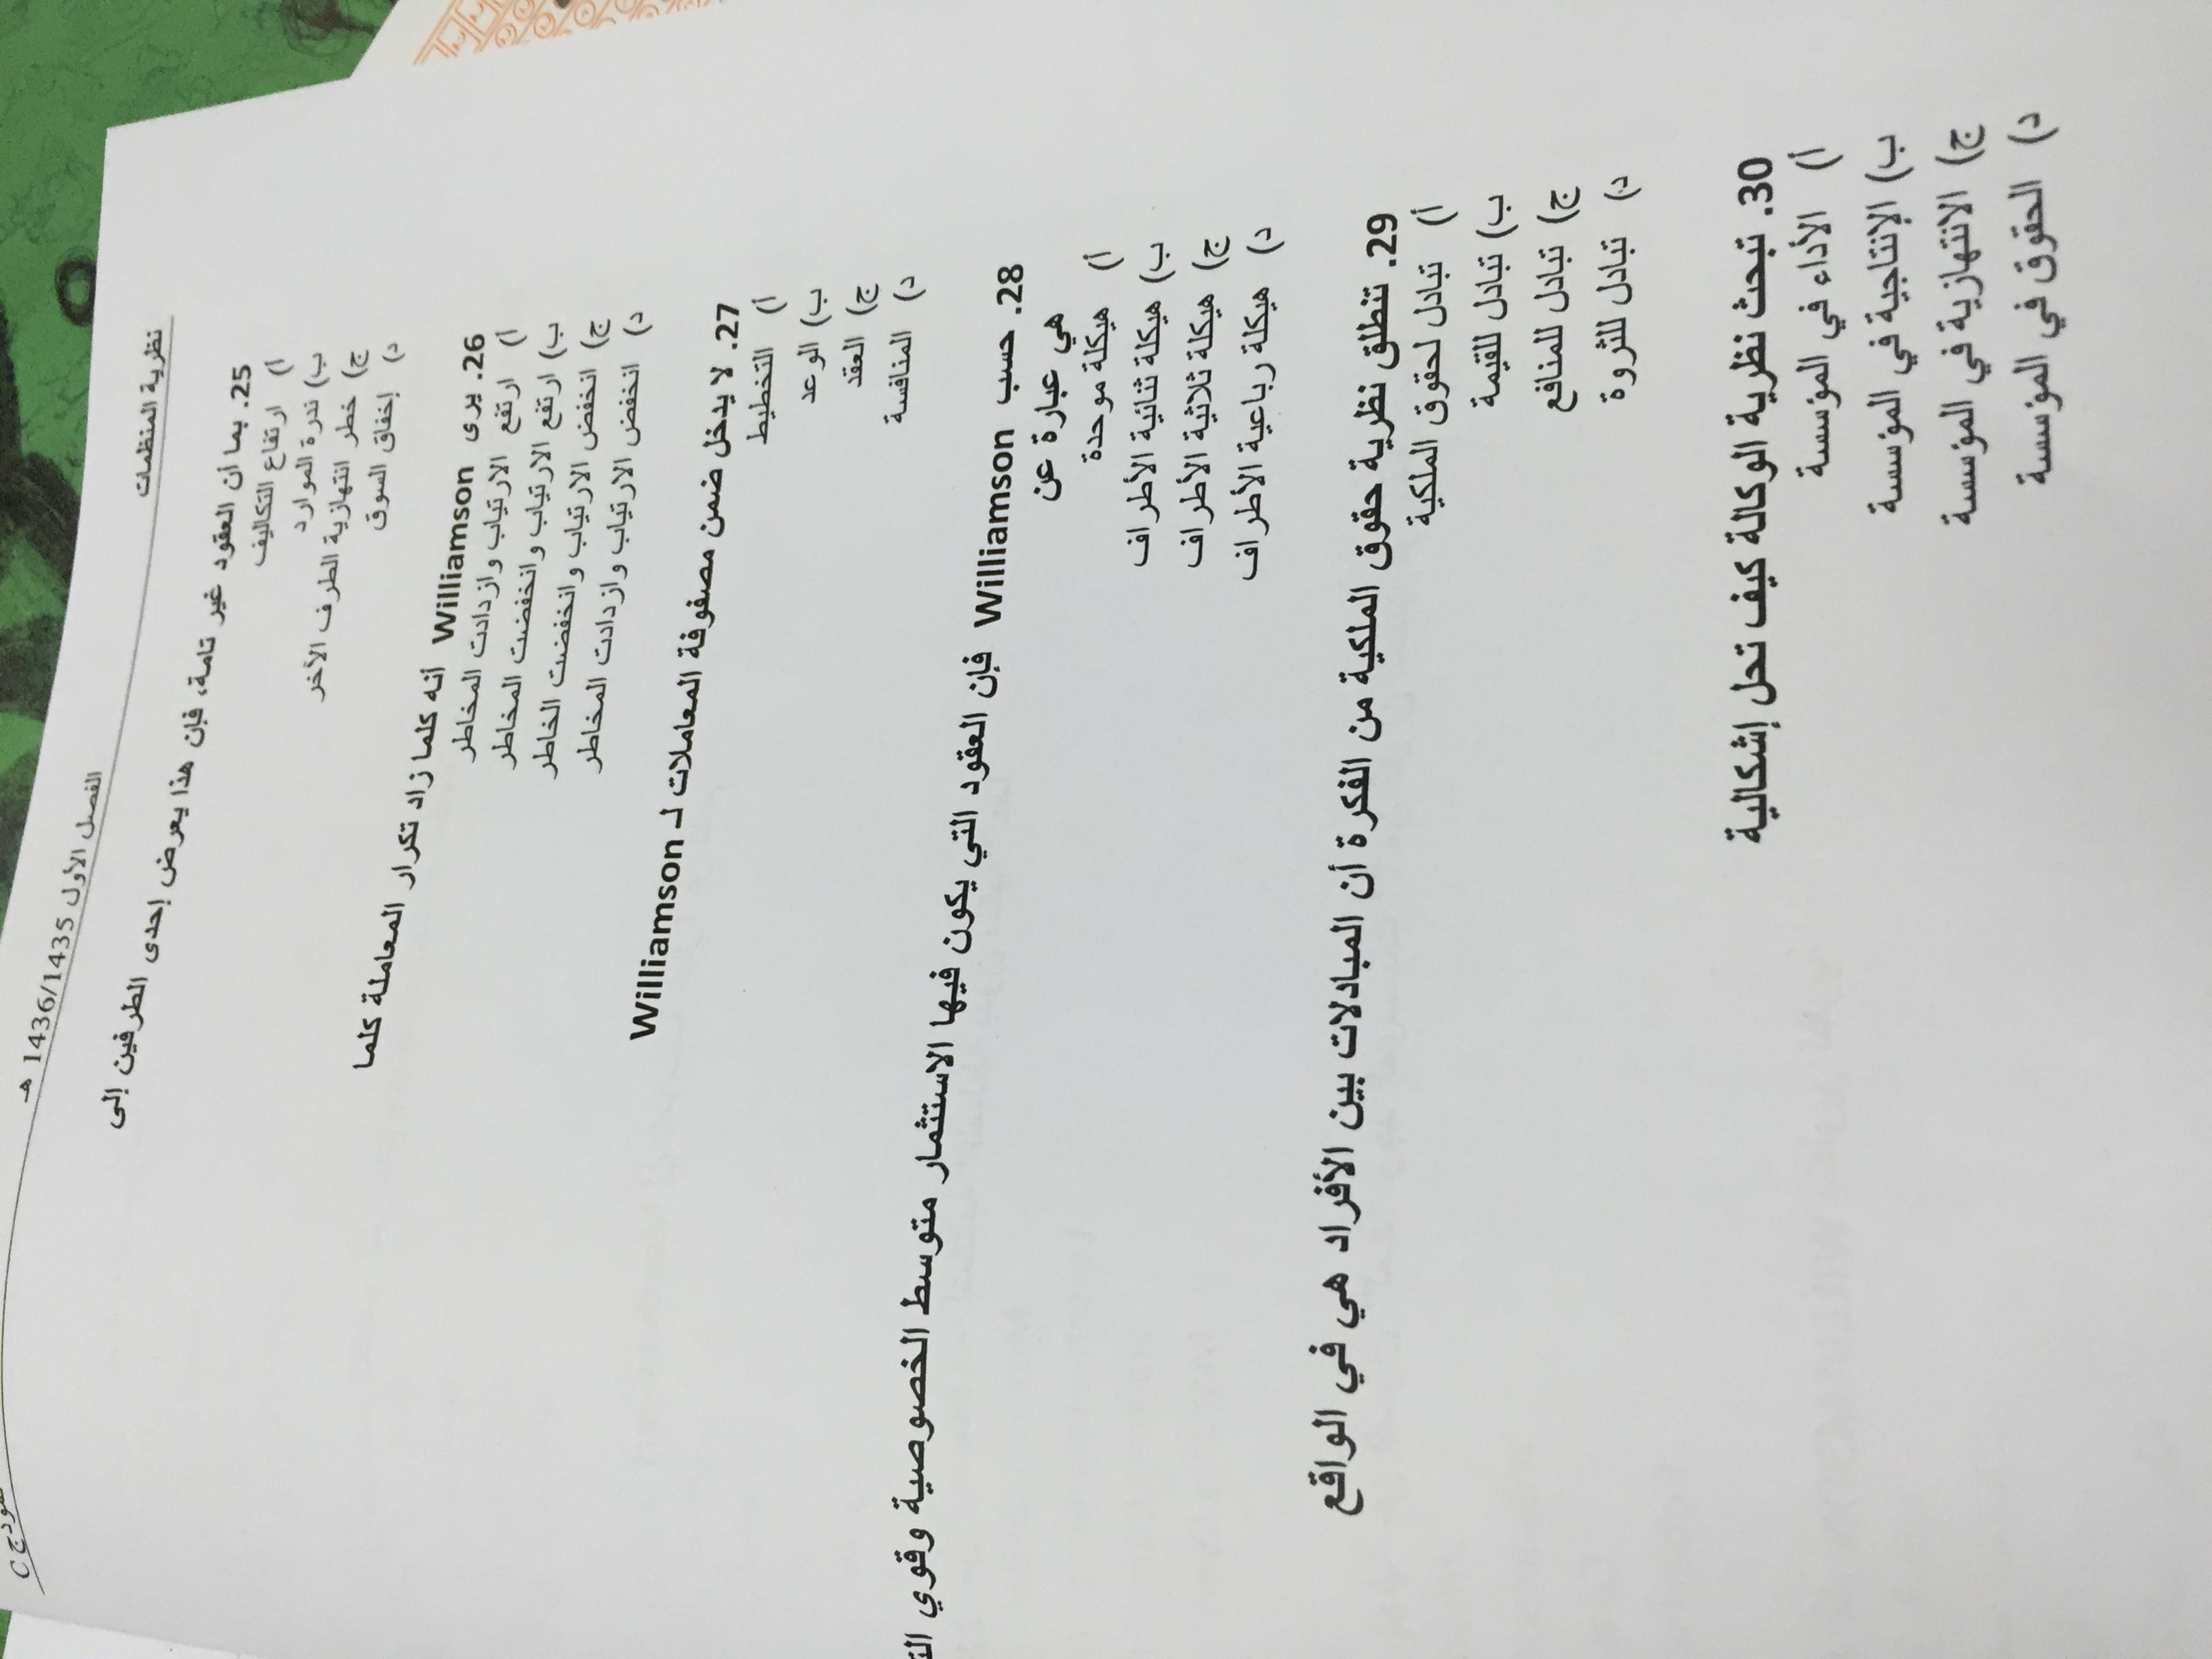 نظرية المنظمات
الفصل الأول 1436/1435 هـ
نموذج C
25. بما أن العقود غير تامة، فإن هذا يعرض إحدى الطرفين إلى
أ) ارتفاع التكاليف
ب) ندرة الموارد
ج) خطر انتهازية الطرف الأخر
د) إخفاق السوق
26. يرى Williamson أنه كلما زاد تكرار المعاملة كلما
أ) ارتفع الارتياب وازدادت المخاطر
ب) ارتفع الارتياب وانخفضت المخاطر
ج) انخفض الارتياب وانخفضت الخاطر
د) انخفض الارتياب وازدادت المخاطر
27. لا يدخل ضمن مصفوفة المعاملات لـ Williamson
أ) التخطيط
ب) الوعد
ج) العقد
د) المنافسة
28. حسب Williamson فإن العقود التي يكون فيها الاستثمار متوسط الخصوصية وقوي
هي عبارة عن
أ) هيكلة موحدة
ب) هيكلة ثنائية الأطراف
ج) هيكلة ثلاثية الأطراف
د) هيكلة رباعية الأطراف
29. تنطلق نظرية حقوق الملكية من الفكرة أن المبادلات بين الأفراد هي في الواقع
أ) تبادل لحقوق الملكية
ب) تبادل للقيمة
ج) تبادل للمنافع
د) تبادل للثروة
30. تبحث نظرية الوكالة كيف تحل إشكالية
أ) الأداء في المؤسسة
ب) الإنتاجية في المؤسسة
ج) الانتهازية في المؤسسة
د) الحقوق في المؤسسة